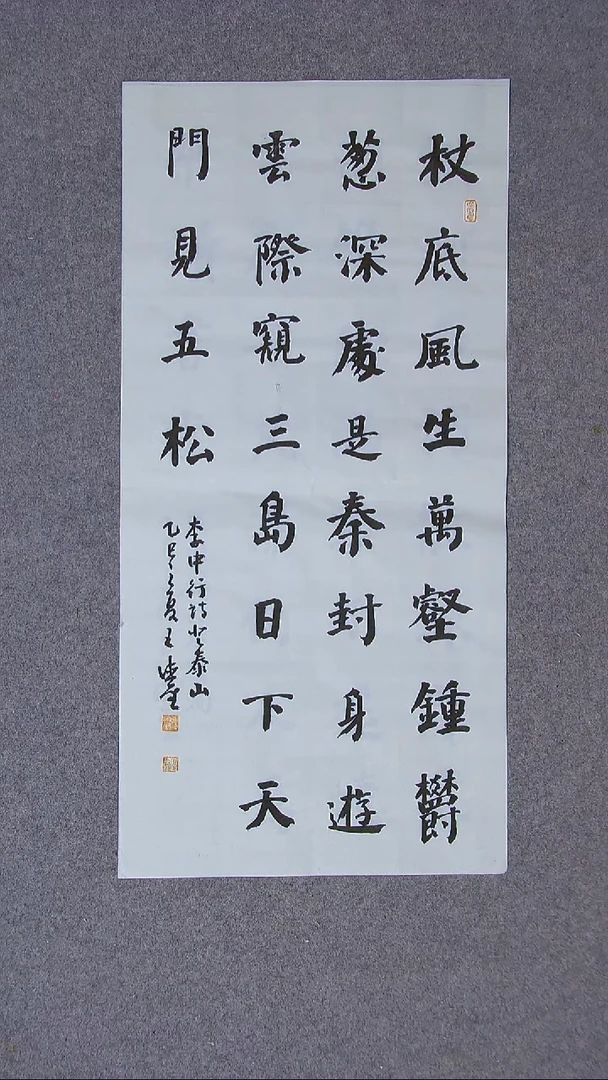 杖底風生萬壑鍾欝
葱深處是秦封身遊
雲際窺三島日下天
門見五松
李中行詩登泰山
乙巳之夏王